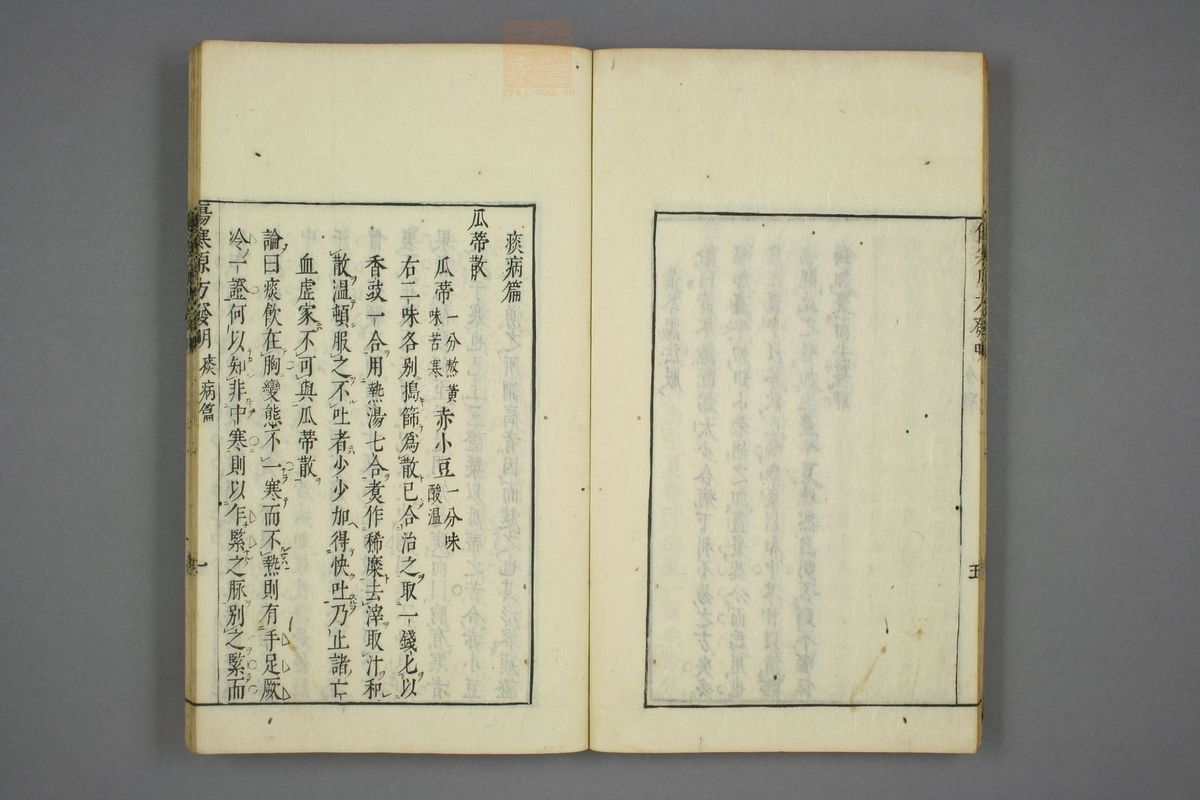 五
痰病篇
瓜蒂散
瓜蒂一分熬黄味苦寒赤小豆一分味酸温
右二味各别搗篩爲散已合治之取一錢匕以
香豉一合用熱湯七合煮作稀糜去滓取汁和
散温頓服之不吐者少少加得快吐乃止諸亡
血虚家不可與瓜蒂散
論曰痰飲在胸變態不一寒而不熱則有手足厥
冷一證何以知非中寒則以乍緊之脉别之緊而
傷寒原方發明 痰病篇 一
zysj.com.cn